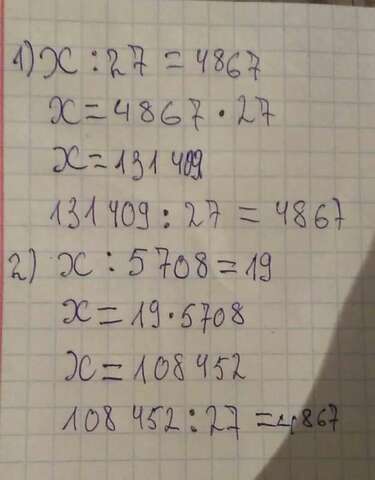 1) x : 27 = 4867
x = 4867 · 27
x = 131409
131409 : 27 = 4867
2) x : 5708 = 19
x = 19 · 5708
x = 108452
108452 : 27 = 4867